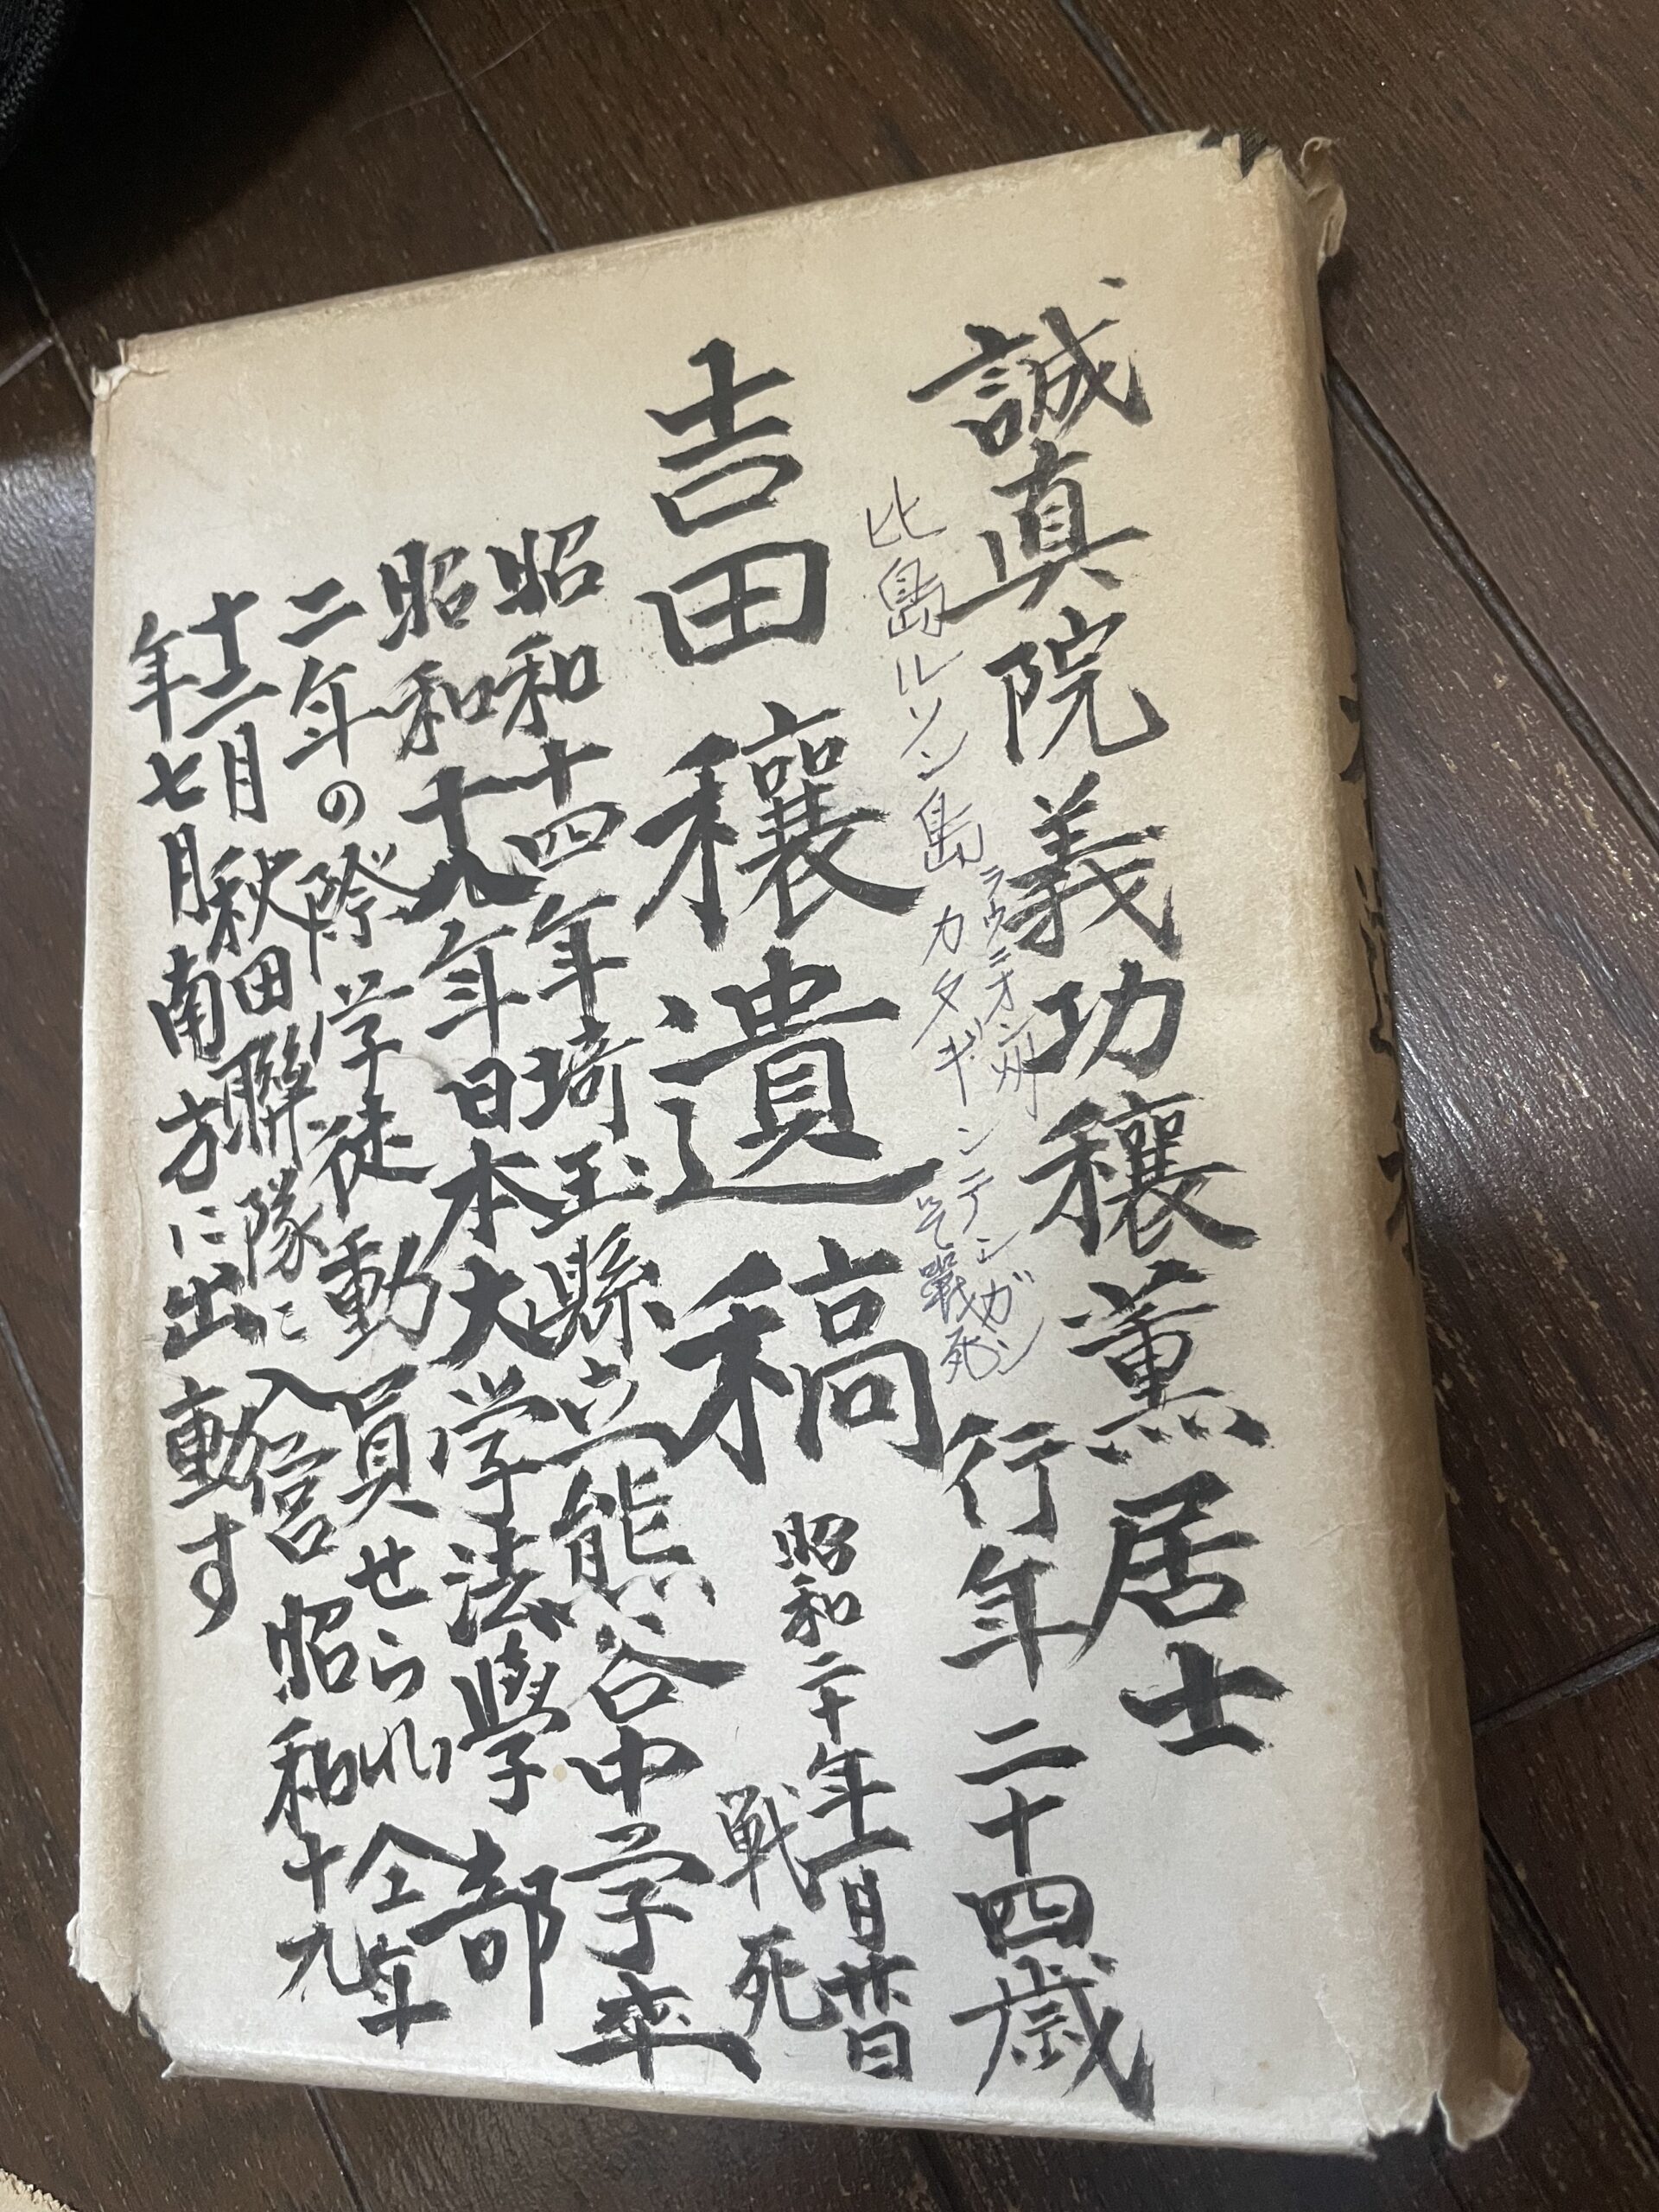 誠真院義功穰薫居士
行年二十四歳
比島ルソン島
ラウニオン州
カタギンテンガン
ニて戰死
吉田穰遺稿
昭和二十年一月廿日
戦死
昭和十四年埼玉縣立熊谷中学卆
昭和十八年日本大学法學部
二年の際学徒動員せられ仝年
十二月秋田聯隊に入営昭和十九
年七月南方に出動す